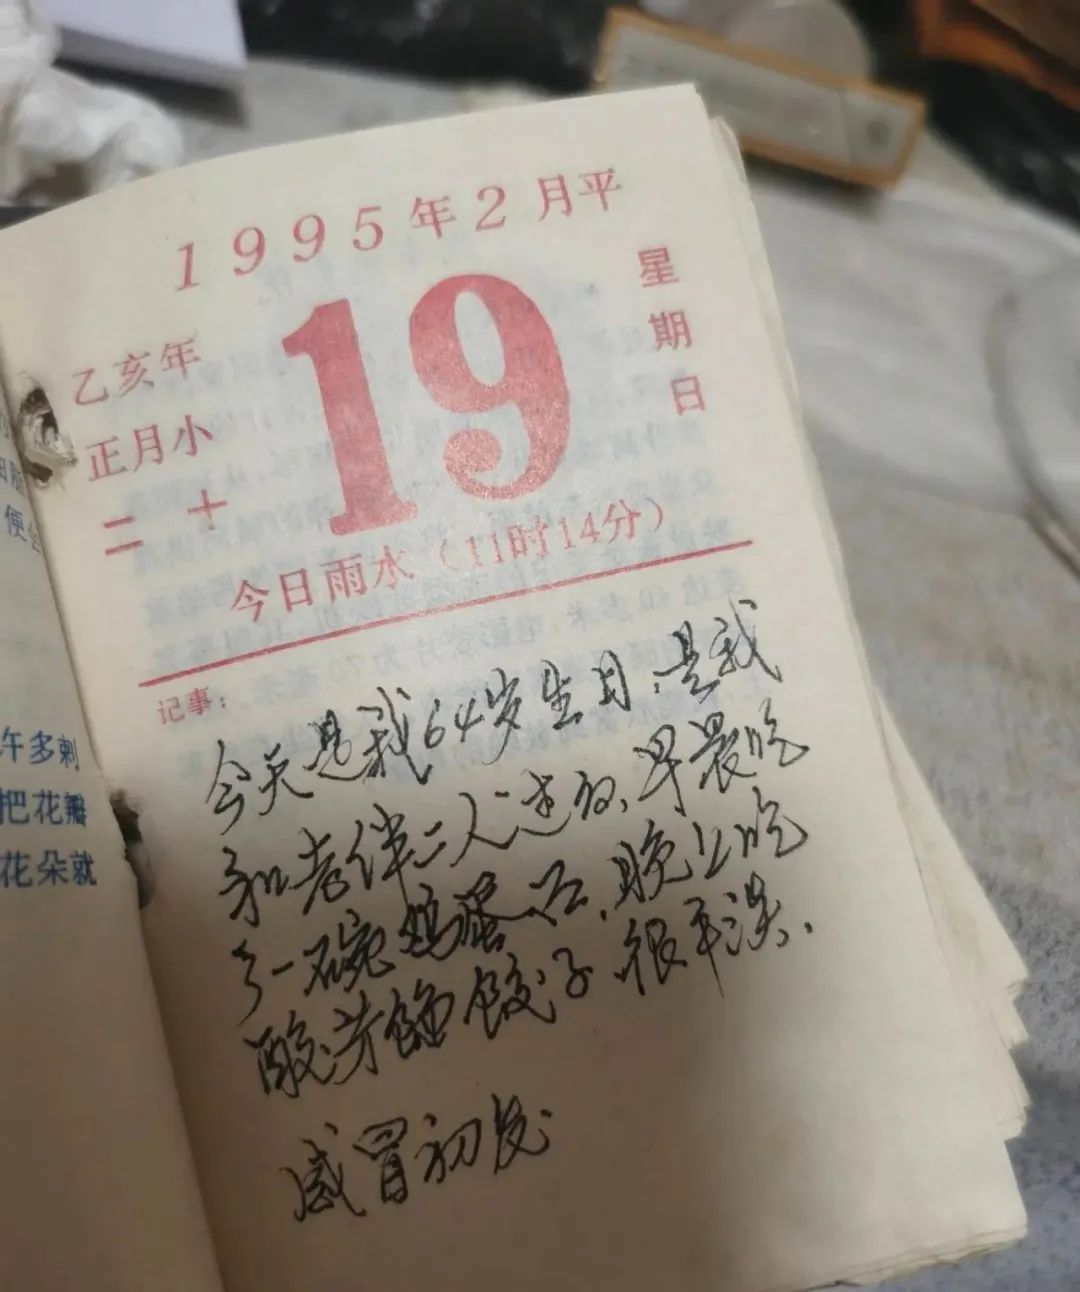 1995年2月平
19
星期日
乙亥年
正月小
二十
今日雨水（11时14分）
记事：
今天是我64岁生日，是我
和老伴二人过的，早晨吃
了一碗鸡蛋，晚上吃
酸芥馅饺子，很平淡.
感冒初发
午多刺
把花瓣
花朵就
便会